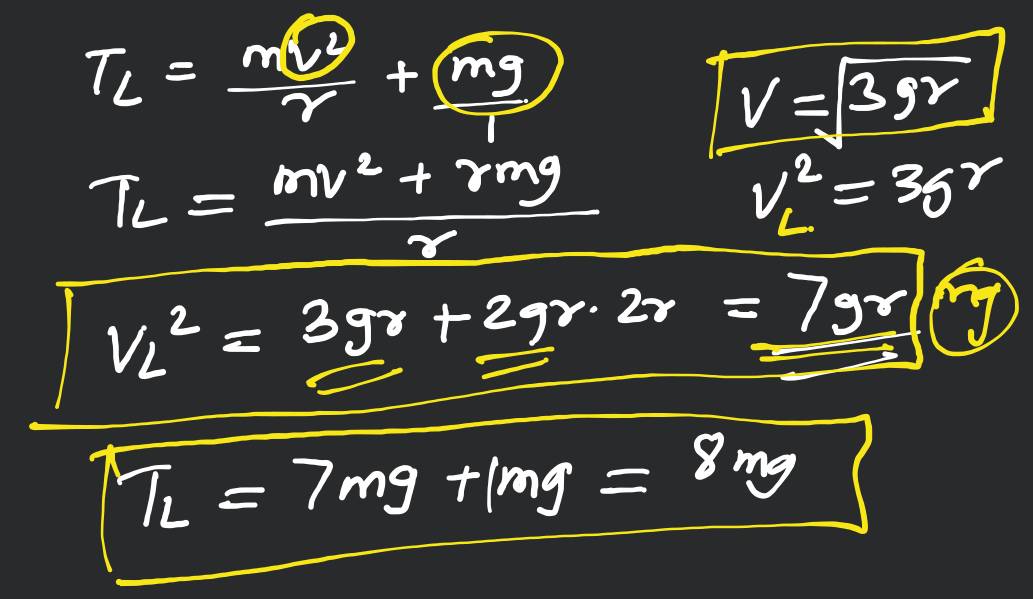 T_L = mv²/r + mg/1
V = √3gr
T_L = (mv² + rmg)/r
V_L² = 3gr
V_L² = 3gr + 2gr·2r = 7gr mg
T_L = 7mg + 1mg = 8mg